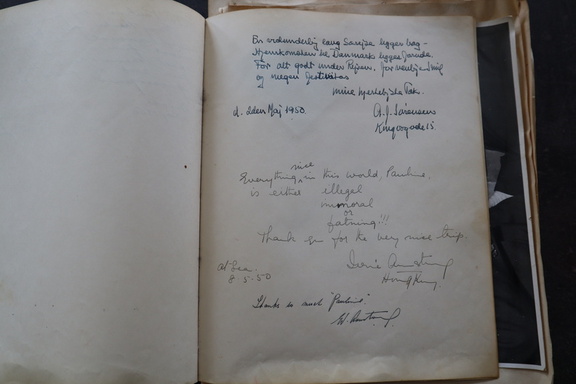 En vidunderlig lang Sørejse ligger bag -
Hjemkomsten til Danmarks
For alt godt under Rejsen, for
og megen
mine hjerteligste Tak.
d. 2den Maj 1950
A. J. Sørensen
15
nice
Everything ^ in this world, Pauline,
is either illegal
immoral
or
fatning!!!
Thank you for the very nice trip.
At Sea.
8-5-50
Armstrong
Hong Kong.
Thanks so much "Pauline".
Armstrong.